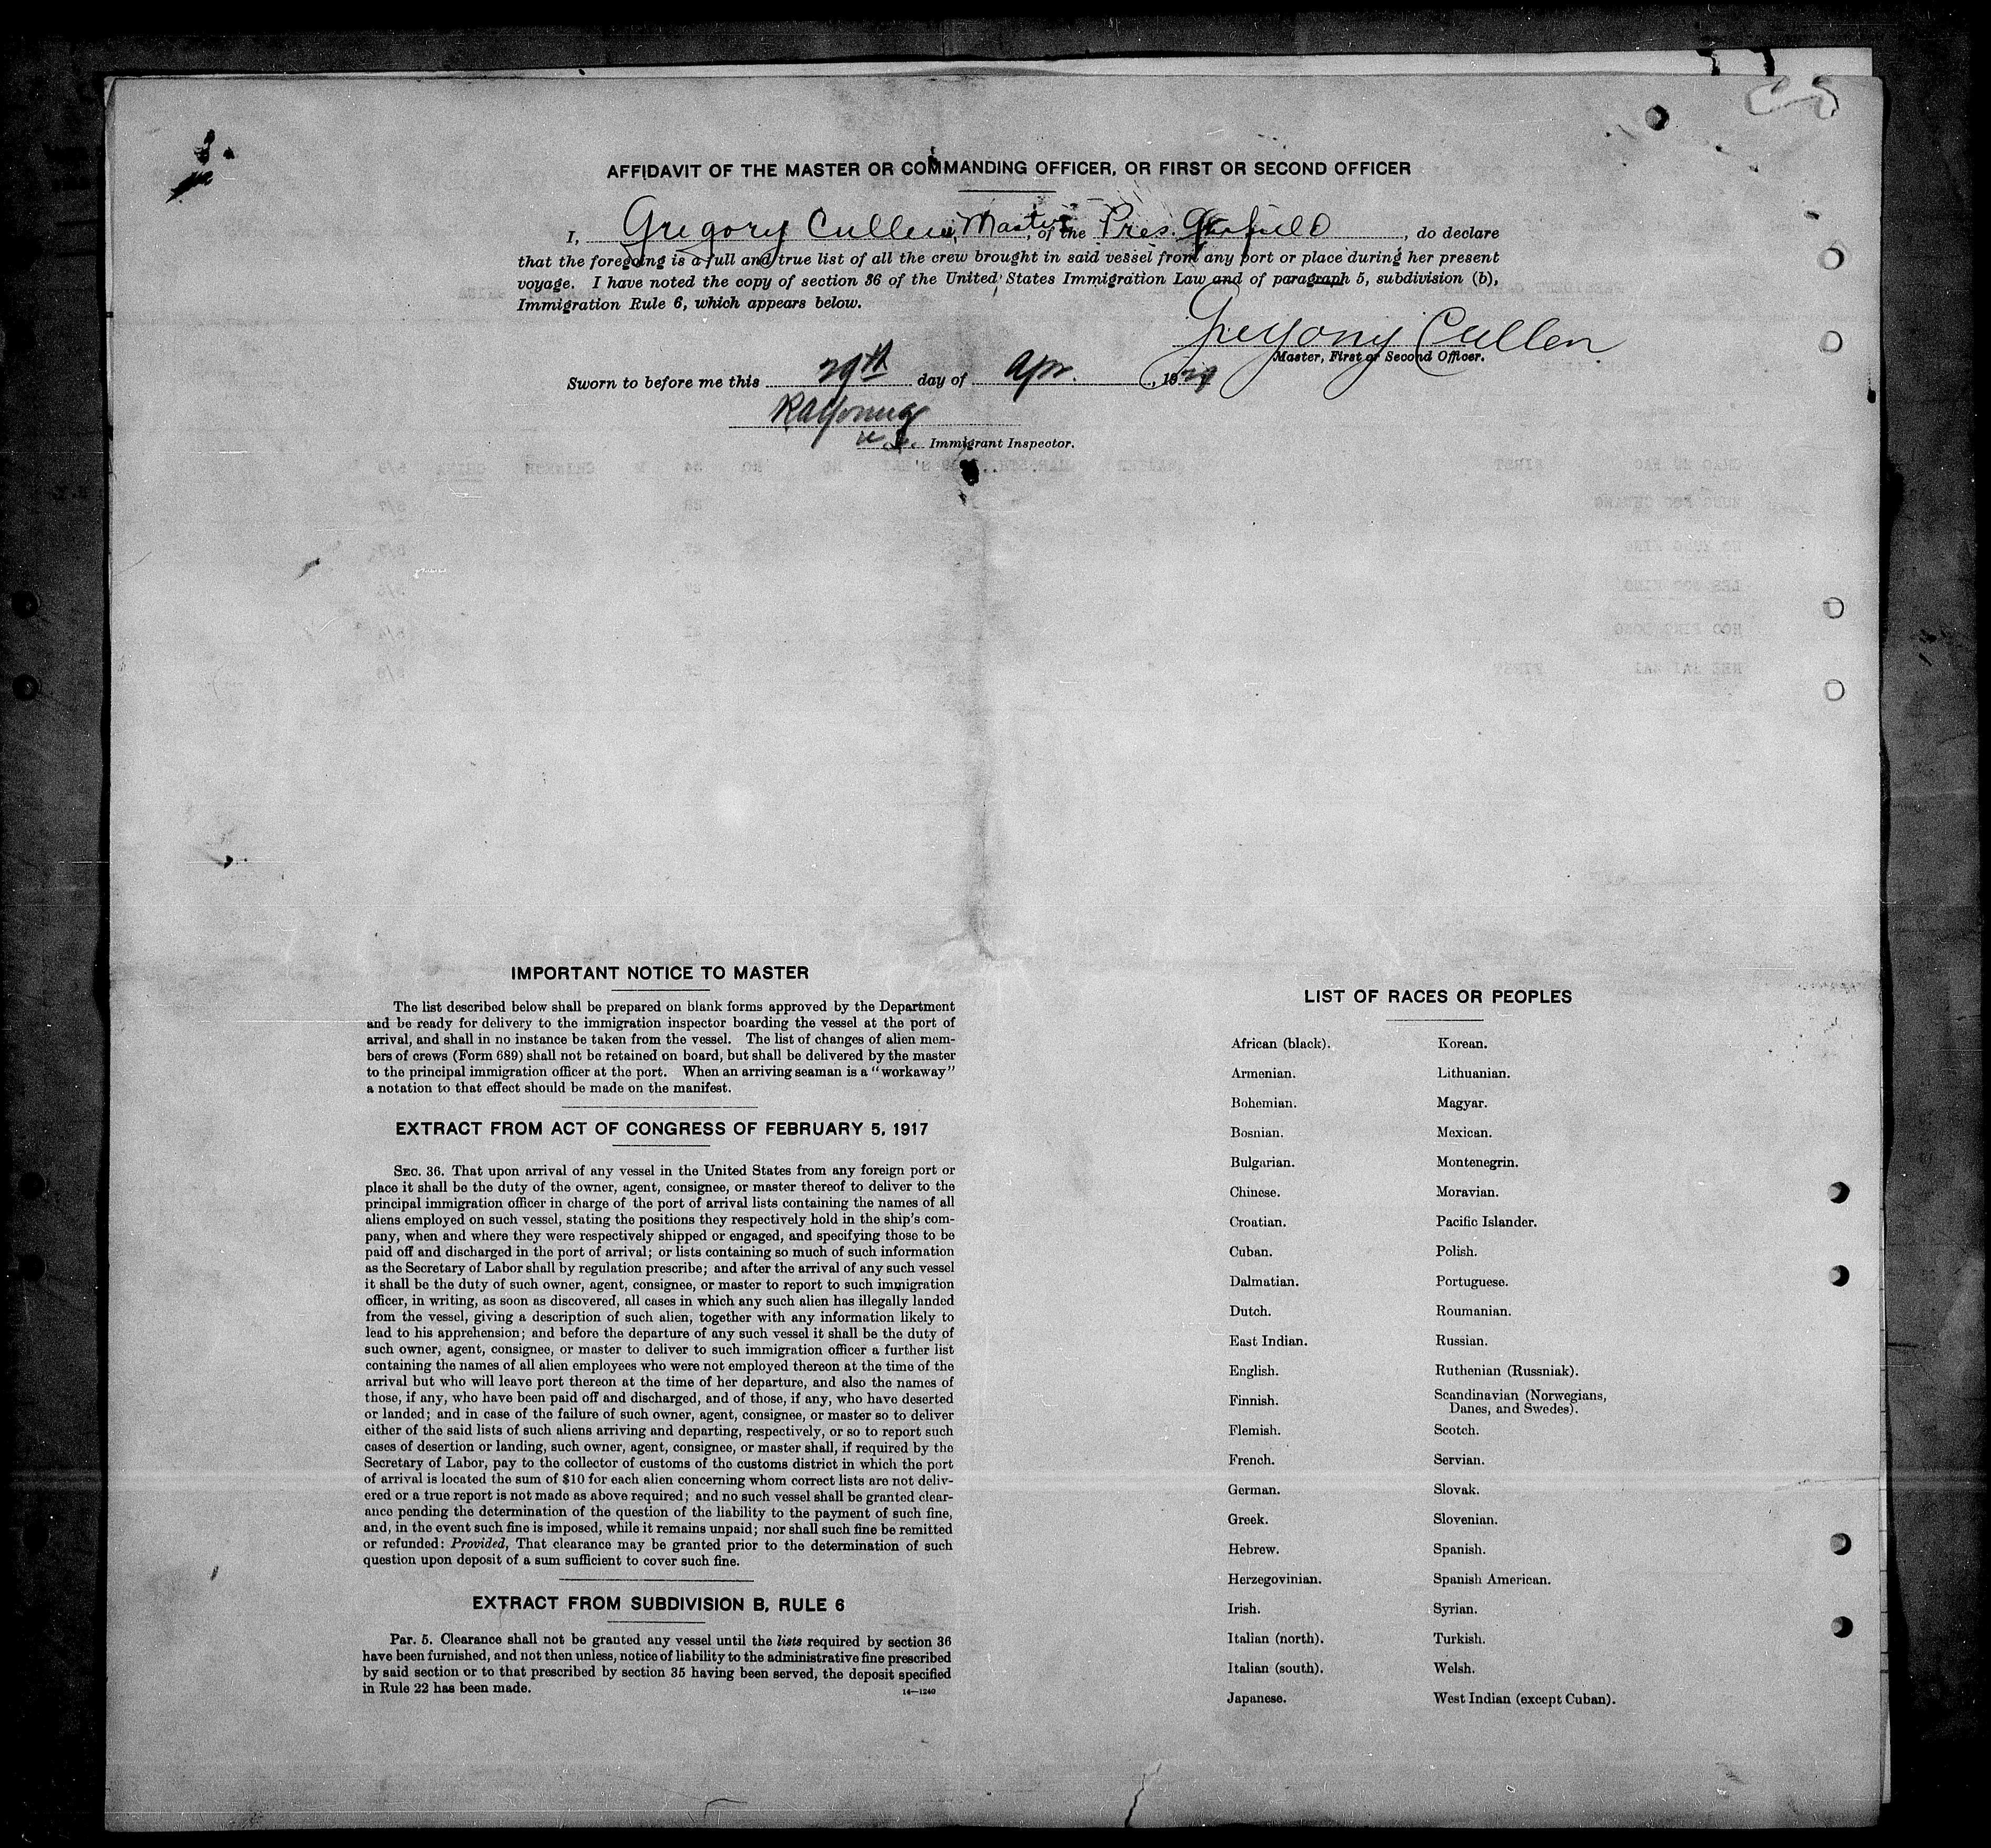 AFFIDAVIT OF THE MASTER OR COMMANDING OFFICER, OR FIRST OR SECOND OFFICER
I, Gregory Cullen, Master, of the Pres. Garfield, do declare
that the foregoing is a full and true list of all the crew brought in said vessel from any port or place during her present
voyage. I have noted the copy of section 36 of the United States Immigration Law and of paragraph 5, subdivision (b),
Immigration Rule 6, which appears below.
Gregory Cullen
Master, First or Second Officer.
Sworn to before me this 29th day of Apr. , 1929
RAYoung
U.S. Immigrant Inspector.
IMPORTANT NOTICE TO MASTER
The list described below shall be prepared on blank forms approved by the Department
and be ready for delivery to the immigration inspector boarding the vessel at the port of
arrival, and shall in no instance be taken from the vessel. The list of changes of alien mem-
bers of crews (Form 689) shall not be retained on board, but shall be delivered by the master
to the principal immigration officer at the port. When an arriving seaman is a "workaway"
a notation to that effect should be made on the manifest.
EXTRACT FROM ACT OF CONGRESS OF FEBRUARY 5, 1917
SEC. 36. That upon arrival of any vessel in the United States from any foreign port or
place it shall be the duty of the owner, agent, consignee, or master thereof to deliver to the
principal immigration officer in charge of the port of arrival lists containing the names of all
aliens employed on such vessel, stating the positions they respectively hold in the ship's com-
pany, when and where they were respectively shipped or engaged, and specifying those to be
paid off and discharged in the port of arrival; or lists containing so much of such information
as the Secretary of Labor shall by regulation prescribe; and after the arrival of any such vessel
it shall be the duty of such owner, agent, consignee, or master to report to such immigration
officer, in writing, as soon as discovered, all cases in which any such alien has illegally landed
from the vessel, giving a description of such alien, together with any information likely to
lead to his apprehension; and before the departure of any such vessel it shall be the duty of
such owner, agent, consignee, or master to deliver to such immigration officer a further list
containing the names of all alien employees who were not employed thereon at the time of the
arrival but who will leave port thereon at the time of her departure, and also the names of
those, if any, who have been paid off and discharged, and of those, if any, who have deserted
or landed; and in case of the failure of such owner, agent, consignee, or master so to deliver
either of the said lists of such aliens arriving and departing, respectively, or so to report such
cases of desertion or landing, such owner, agent, consignee, or master shall, if required by the
Secretary of Labor, pay to the collector of customs of the customs district in which the port
of arrival is located the sum of $10 for each alien concerning whom correct lists are not deliv-
ered or a true report is not made as above required; and no such vessel shall be granted clear-
ance pending the determination of the question of the liability to the payment of such fine,
and, in the event such fine is imposed, while it remains unpaid; nor shall such fine be remitted
or refunded: Provided, That clearance may be granted prior to the determination of such
question upon deposit of a sum sufficient to cover such fine.
EXTRACT FROM SUBDIVISION B, RULE 6
Par. 5. Clearance shall not be granted any vessel until the lists required by section 36
have been furnished, and not then unless, notice of liability to the administrative fine prescribed
by said section or to that prescribed by section 35 having been served, the deposit specified
in Rule 22 has been made.
14—1240
LIST OF RACES OR PEOPLES
African (black).
Armenian.
Bohemian.
Bosnian.
Bulgarian.
Chinese.
Croatian.
Cuban.
Dalmatian.
Dutch.
East Indian.
English.
Finnish.
Flemish.
French.
German.
Greek.
Hebrew.
Herzegovinian.
Irish.
Italian (north).
Italian (south).
Japanese.
Korean.
Lithuanian.
Magyar.
Mexican.
Montenegrin.
Moravian.
Pacific Islander.
Polish.
Portuguese.
Roumanian.
Russian.
Ruthenian (Russniak).
Scandinavian (Norwegians,
Danes, and Swedes).
Scotch.
Servian.
Slovak.
Slovenian.
Spanish.
Spanish American.
Syrian.
Turkish.
Welsh.
West Indian (except Cuban).